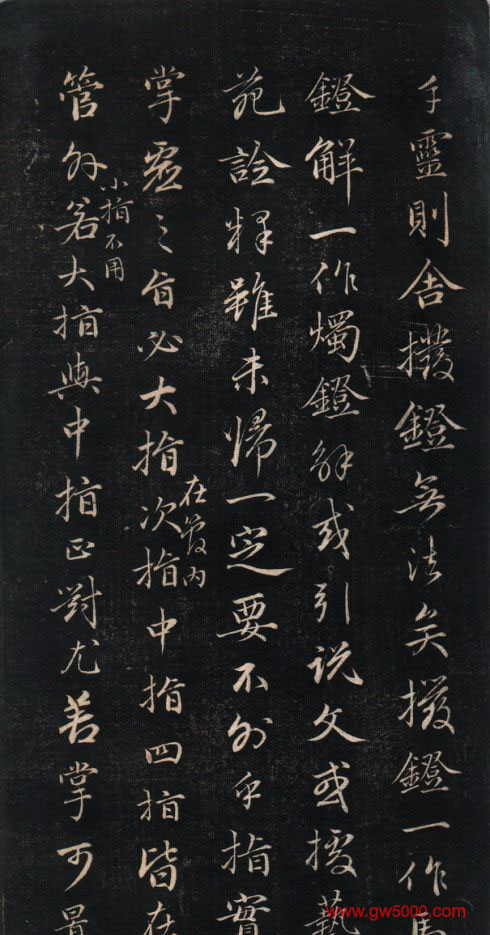 手靈則舍撥鐙無法矣撥鐙一作馬
鐙解一作燭鐙解或引説文或援藝
苑詮釋雖未歸一定要不外乎指實
掌虛之旨必大指次指中指四指皆在
在管内
管外若大指與中指正對尤善掌可
小指不用
www.gw5000.com